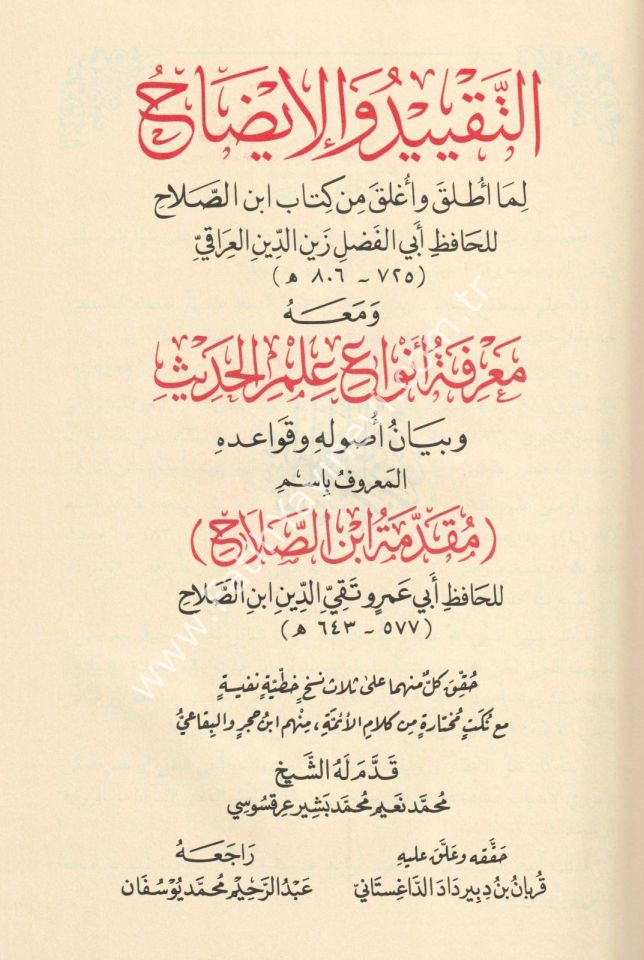 التَّقْيِيدُ وَالإِيضَاحُ
لِمَا أُطْلِقَ وَأُغْلِقَ مِن كِتَاب ابن الصَّلَاحِ
للحَافِظِ أَبِي الفَضلِ زَينِ الدِّينِ العِرَاقِيِّ
(٧٢٥ - ٨٠٦ هـ)
وَمَعَهُ
مَعْرِفَةُ أَنْوَاعِ عِلْمِ الحَدِيثِ
وبيَانُ أُصُولِهِ وقَوَاعده
المَعروفُ بِاسْمِ
(مُقَدِّمَةُ ابْنِ الصَّلَاحِ)
للحَافِظِ أَبِي عَمرٍو تَقِيِّ الدِّينِ ابنِ الصَّلَاحِ
(٥٧٧ - ٦٤٣ هـ)
حُقِّقَ كلٌّ منهما على ثلاث نسخٍ خطّيّةٍ نفيسةٍ
مع نُكَتٍ مُختارةٍ مِن كلامِ الأئمّة، مِنْهم ابنُ حجرٍ والبِقاعيُّ
قَدَّمَ لَهُ الشَّيخ
محمّد نعيم محمّد بشير عرقسوسي
حَقَّقه وعَلَّق عليهِ
قُربانُ بنُ دِبيردَادَ الدَّاغِستَانيّ
رَاجَعَهُ
عَبدُ الرَّحيْم مُحمّد يُوسُفَان